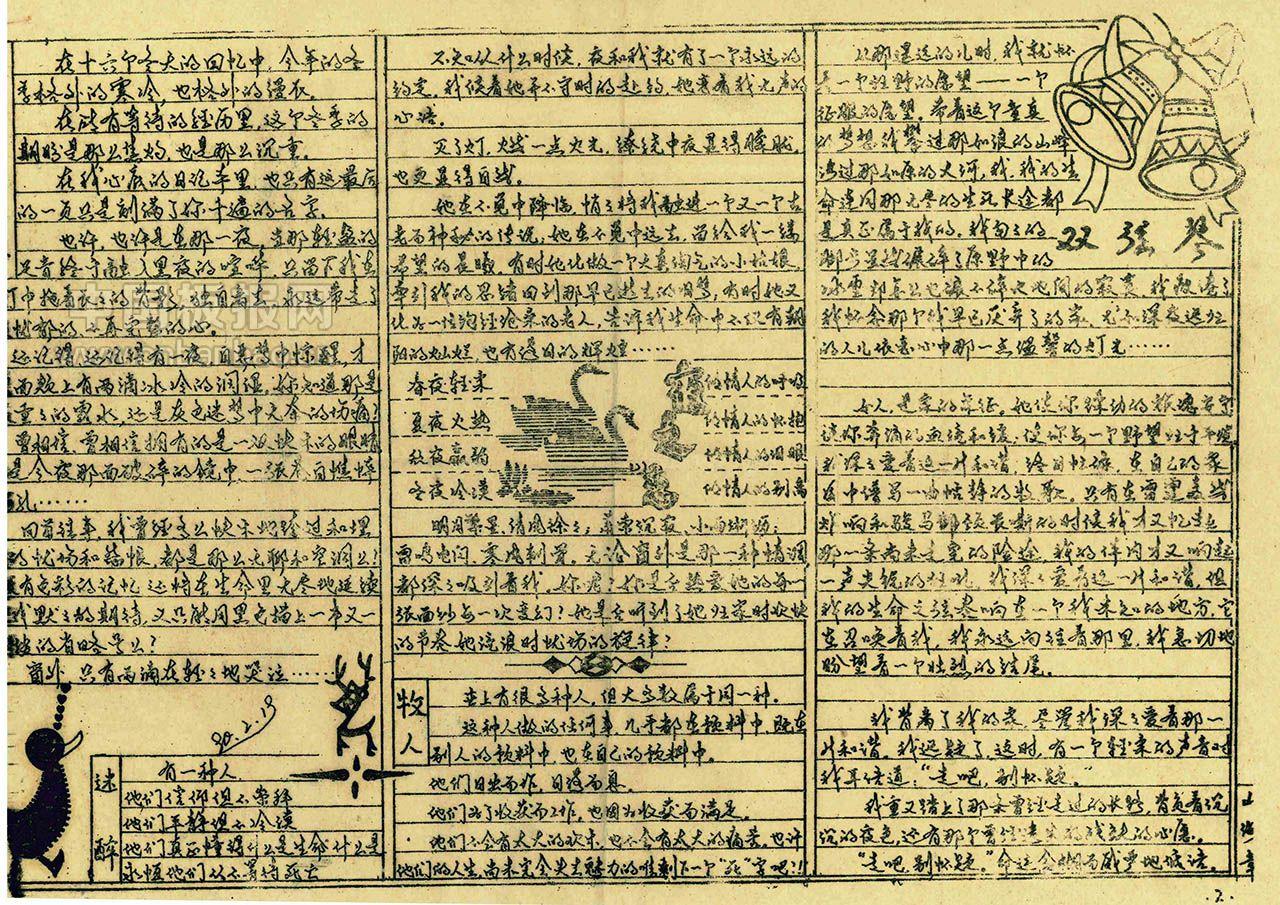 在十六个冬天的回忆中，今年的冬
季格外的寒冷，也格外的漫长。
在所有等待的经历里，这个冬季的
期盼是那么焦灼，也是那么沉重。
在我心底的日记本里，也只有这最后
的一页只是刻满了你千遍的名字。
也许，也许是在那一夜，当那轻盈的
足音终于融入黑夜的喧哗，只留下我在
灯巾拖着长长的背影，独自离去，永远带走了
忧郁的、不再完整的心。
还记得，还记得有一夜，自恶梦中惊醒，才
面颊上有两滴冰冷的润湿，你知道那是
重重的露水，还是灰色迷梦中无奈的伤痛？
曾相信，曾相信拥有的是一双快乐的眼睛
是今夜那面破碎的镜中一张苍白憔悴
孔……
回首往事，我曾经多么快乐地踏过和埋
的忧伤和结帐，都是那么无聊和空洞么！
没有色彩的记忆，还将在生命里无尽地延续
我默默的期待，又只能用黑色描上一串又一
的省略号么？
窗外，只有雨滴在轻轻地哭泣……
90.2.19
迷醉
有一种人
他们信仰但不崇拜
他们平静但不冷漠
他们真正懂得什么是生命什么是
永恒他们从不等待死亡
不知从什么时候，夜和我就有了一个永远的
约定，我候着她不守时的赴约，她寒着我无声的
心语。
灭了灯，燃一点火光，缭绕中夜显得朦胧，
也更显得自然。
她在不觉中降临，悄悄将我融进一个又一个古
老而神秘的传说；她在不觉中远去，留给我一缕
希望的晨曦。有时她化做一个天真淘气的小姑娘，
牵引我的思绪回到那早已逝去的旧梦，有时她又
化为一位饱经沧桑的老人，告诉我生命中不只有朝
阳的灿烂，也有落日的辉煌……
春夜轻柔 似情人的呼吸
夏夜火热 似情人的怀抱
秋夜羸弱 似情人的泪眼
冬夜冷漠 似情人的别离
夜之恋
明月繁星，清风徐徐；萧索沉寂，小雨淅沥；
雷鸣电闪，寒风刺骨。无论窗外是那一种情调
都深深吸引着我。你呢？你是否热爱她的每一
张面纱每一次变幻？她是否听到了她归家时欢快
的节奏她流浪时忧伤的旋律？
牧人
世上有很多种人，但大多数属于同一种。
这种人做的任何事，几乎都在预料中，既在
别人的预料中，也在自己的预料中。
他们日出而作，日落而息。
他们为了收获而工作，也因为收获而满足。
他们不会有太大的欢乐，也不会有太大的痛苦。也许
他们的人生，尚未完全失去魅力的唯剩下一个“死”字吧！！
双弦琴
从那遥远的儿时，我就怀
着一个狂野的愿望——一个
征服的愿望。带着这个童真
的梦想我攀过那如浪的山峰
涉过那如原的大河，我，我的生
命连同那无尽的生死长途都
是真正属于我的。我匆匆的
脚步虽然碾碎了原野中的
冰雪却怎么也碾不碎天地间的寂寞。我疲惫了
我怀念那个我早已厌弃了的家，尤如深夜远归
的人儿依恋心中那一点温馨的灯光……
女人，是家的象征。她使你躁动的祝愿安宁
让你奔涌的血液和缓；使你每一个野望归于平缓
我深深爱着这一片和谐；终日忙碌，在自己的家
园中谱写一曲恬静的牧歌。只有在雷霆轰然
炸响和骏马长嘶的时候我才又忆起
那一条尚未走完的险途，我的体内才又响起
一声尖锐的狂吼，我深深爱着这一片和谐，但
我的生命之弦奏响在一个我未知的地方，它
在召唤着我。我永远向往着那里，我急切地
盼望着一个壮烈的结尾。
我背离了我的家，尽管我深深爱着那一
片和谐。我迟疑了，这时，有一个轻柔的声音对
我耳语道：“走吧，别怀疑。”
我重又踏上了那条曾经走过的长路，背负着沉
沉的夜色，还有那个曾经遗失的残缺的心愿。
“走吧，别怀疑。”命运含糊而威重地喊语。
·2·